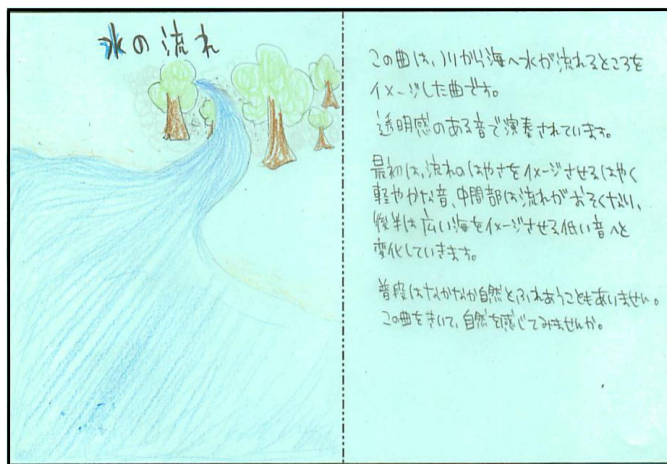 水の流れ
この曲は、川から海へ水が流れるところを
イメージした曲です。
透明感のある音で演奏されています。
最初は、流れのはやさをイメージさせるはやく
軽やかな音、中間部は流れがおそくなり、
後半は広い海をイメージさせる低い音へと
変化していきます。
普段はなかなか自然とふれあうこともありません。
この曲をきいて、自然を感じてみませんか。